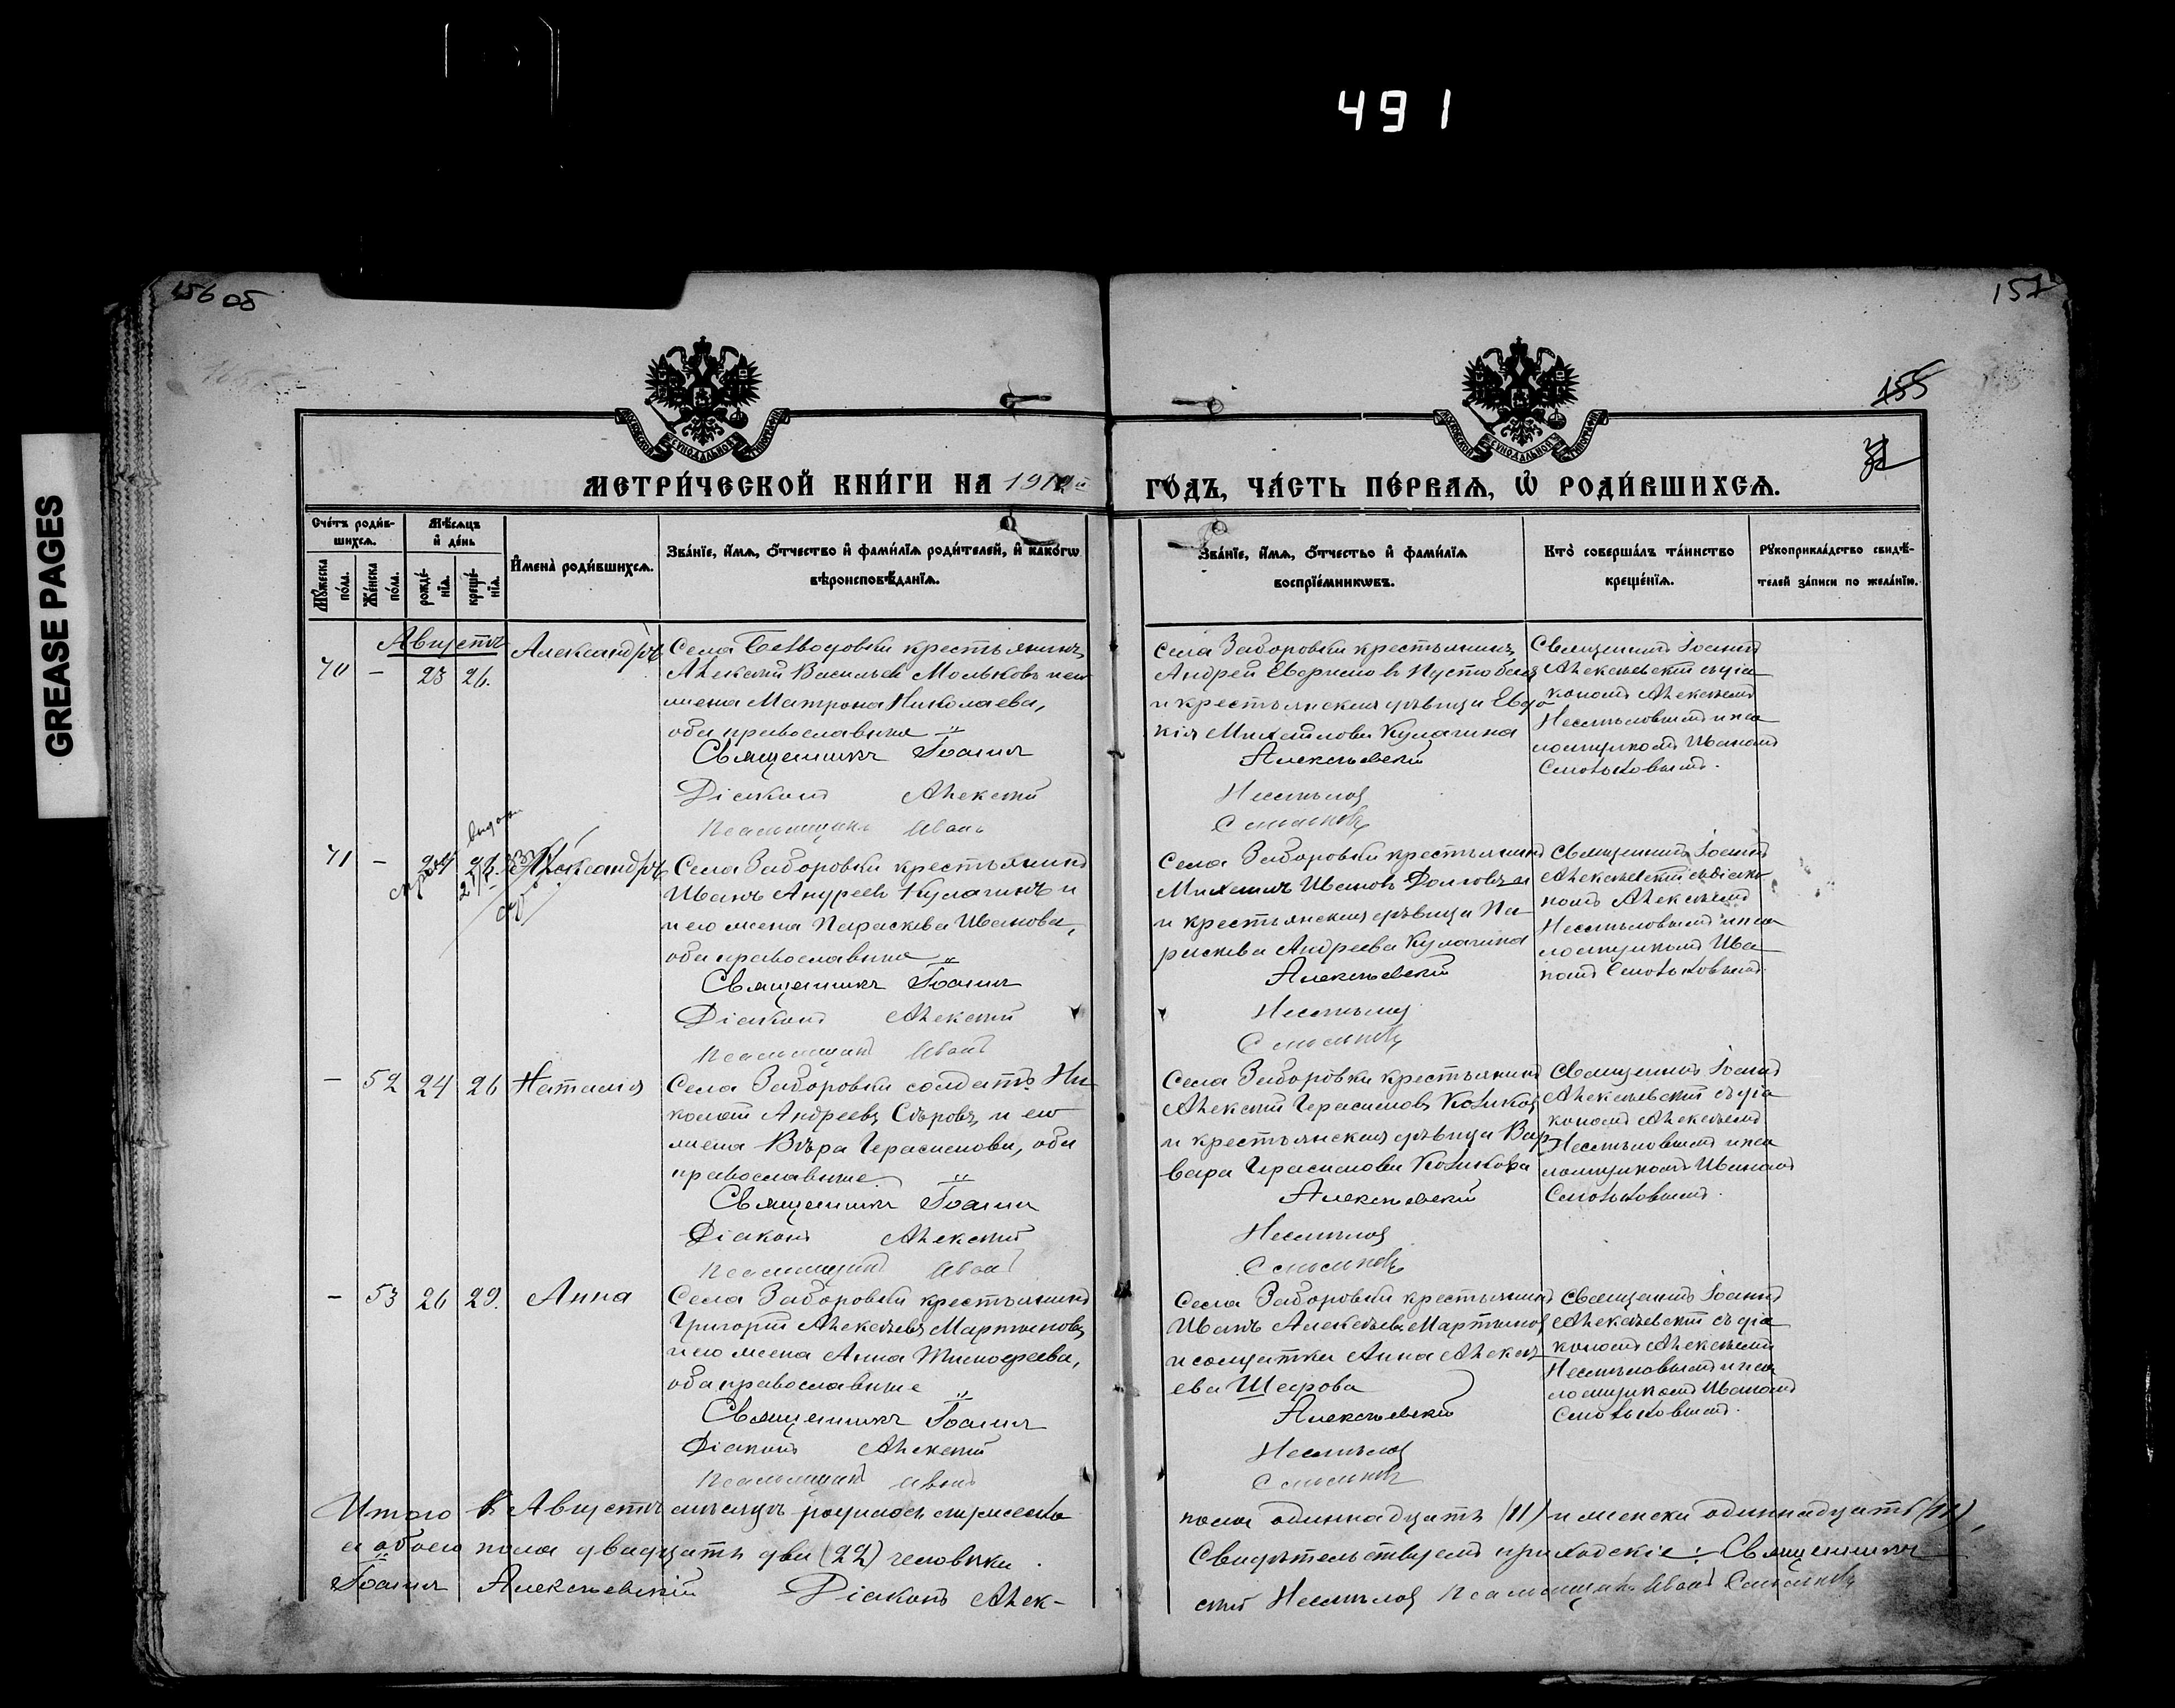 491
GREASE PAGES
156 об
157
155
МЕТРИ́ЧЕСКОЙ КНИ́ГИ НА 1910й
ГО́ДЪ, ЧА́СТЬ ПЕ́РВАЯ, Ѽ РОДИ́ВШИХСЯ.
Сче́тъ роди́в-
шихся.
Мѣ́сяцъ
и҆ де́нь
Му́жеска
по́ла.
Же́нска
по́ла.
рожде́-
нїя.
креще́-
нїя.
И҆мена̀ роди́вшихся.
Зва́нїе, и҆́мя, о҆́тчество и҆ фами́лїя роди́телей, и҆ како́гѡ
вѣроисповѣ́данїя.
Зва́нїе, и҆́мя, о҆́тчество и҆ фами́лїя
воспрїе́мникѡвъ.
Кто̀ соверша́лъ та́инство
креще́нїя.
Рꙋкоприкла́дство свидѣ́-
телей за́писи по жела́нїю.
Августъ
70 - 23 26. Александръ
Села Безводовки крестьянинъ
Алексѣй Васильевъ Мольковъ и его
жена Матрона Николаева,
оба православные
Священникъ Іоаннъ
Діаконъ Алексѣй
Псаломщикъ Иванъ
Села Заборовки крестьянинъ
Андрей
и крестьянская дѣвица Евдо-
кія Михайлова Кулагина
Алексѣевскій
Несмѣловъ
Священникъ Іоаннъ
Алексѣевскій съ діа-
кономъ Алексѣемъ
Несмѣловымъ и пса-
ломщикомъ Иваномъ
71 - 24 26. Александръ
Села Заборовки крестьянинъ
Иванъ Андреевъ Кулагинъ и
и его жена Параскева Иванова,
оба православные
Священникъ Іоаннъ
Діаконъ Алексѣй
Псаломщикъ Иванъ
Села Заборовки крестьянинъ
Михаилъ Ивановъ Долговъ
и крестьянская дѣвица Па-
раскева Андреева Кулагина
Алексѣевскій
Несмѣловъ
Священникъ Іоаннъ
Алексѣевскій съ діако-
номъ Алексѣемъ
Несмѣловымъ и пса-
ломщикомъ Ива-
номъ
- 52 24 26 Наталія
Села Заборовки солдатъ Ни-
колай Андреевъ Сѣровъ и его
жена Вѣра Герасимова, оба
православные
Священникъ Іоаннъ
Діаконъ Алексѣй
Псаломщикъ Иванъ
Села Заборовки крестьянинъ
Алексѣй Герасимовъ
и крестьянская дѣвица Вар-
вара Герасимова
Алексѣевскій
Несмѣловъ
Священникъ Іоаннъ
Алексѣевскій съ діа-
кономъ Алексѣемъ
Несмѣловымъ и пса-
ломщикомъ Иваномъ
- 53 26 29. Анна
Села Заборовки крестьянинъ
Григорій Алексѣевъ Мартыновъ
и его жена Анна Тимофеева,
оба православные
Священникъ Іоаннъ
Діаконъ Алексѣй
Псаломщикъ Иванъ
Села Заборовки крестьянинъ
Иванъ Алексѣевъ Мартыновъ
и солдатка Анна Алексѣ-
ева
Алексѣевскій
Несмѣловъ
Священникъ Іоаннъ
Алексѣевскій съ діа-
кономъ Алексѣемъ
Несмѣловымъ и пса-
ломщикомъ Иваномъ
Итого въ Августѣ мѣсяцѣ родилось мужеска
пола одиннадцать (11) и женска одиннадцать (11),
а обоего пола двадцать два (22) человѣка.
Свидѣтельствуемъ приходскіе: Священникъ
Іоаннъ Алексѣевскій Діаконъ Алек-
сѣй Несмѣловъ Псаломщикъ Иванъ